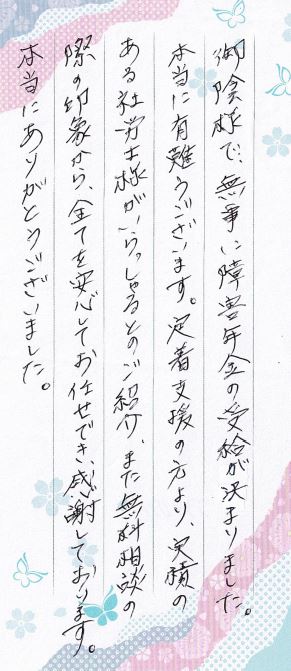 御陰様で、無事に障害年金の受給が決まりました。
本当に有難うございます。定着支援の方より、実績の
ある社労士様がいらっしゃるとのご紹介、また無料相談の
際の印象から、全てを安心してお任せでき、感謝しております。
本当にありがとうございました。